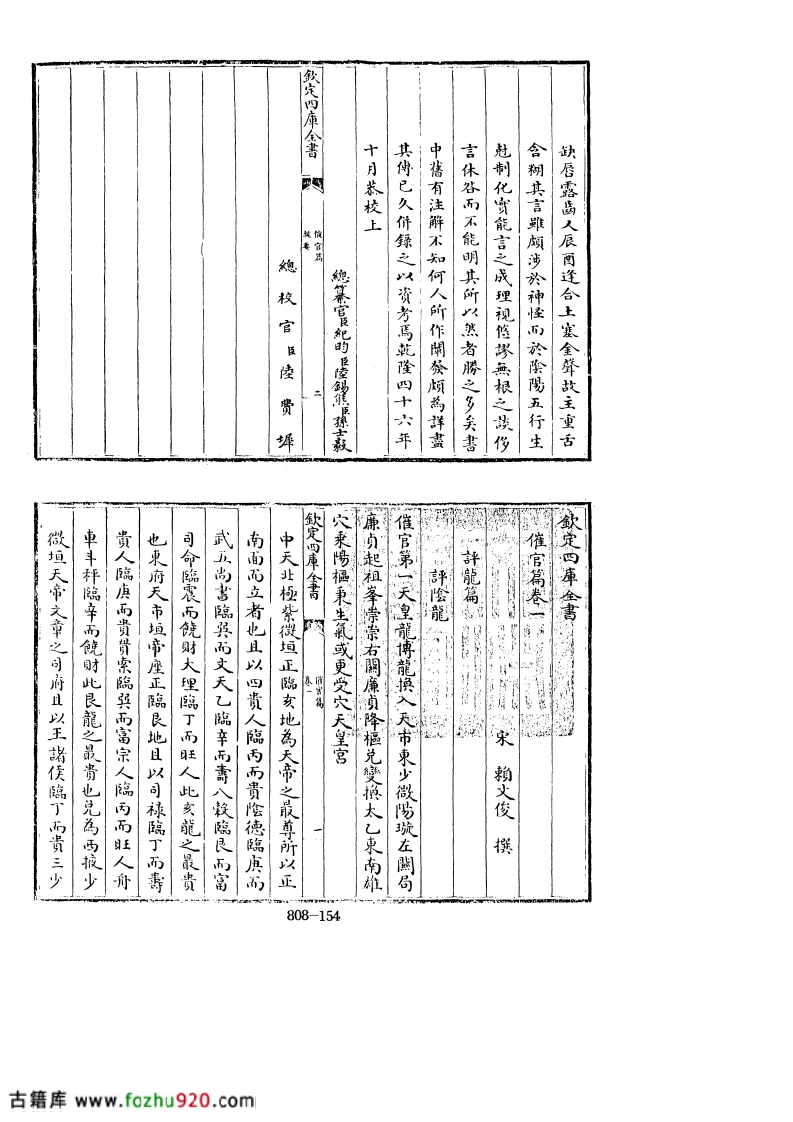 缺唇露齒人辰酉逢合土塞金聲故主重舌
含糊其言雖頗涉於神怪而於陰陽五行生
尅制化實能言之成理視悠謬無根之談侈
言休咎而不能明其所以然者勝之多矣書
中舊有注解不知何人所作闡發頗為詳盡
其傳已久併錄之以資考焉乾隆四十六年
十月恭校上
總纂官臣紀昀臣陸錫熊臣孫士毅
欽定四庫全書
催官篇
提要
二
總校官臣陸費墀
欽定四庫全書
催官篇卷一
宋 賴文俊 撰
評龍篇
評陰龍
催官第一天皇龍博龍換入天市東少微陽璇左關局
廉貞起祖峯崇崇右關廉貞降樞兌變換太乙東南雄
穴乘陽樞秉生氣或更受穴天皇宮
欽定四庫全書
催官篇
卷一
一
中天北極紫微垣正臨亥地為天帝之最尊所以正
南面而立者也且以四貴人臨丙而貴陰德臨庚而
武五尚書臨巽而文天乙臨辛而壽八穀臨艮而富
司命臨震而饒財大理臨丁而旺人此亥龍之最貴
也東府天市垣帝座正臨艮地且以司祿臨丁而壽
貴人臨庚而貴貫索臨巽而富宗人臨丙而旺人舟
車斗秤臨辛而饒財此艮龍之最貴也兌為西掖少
微垣天帝文章之司府且以王諸侯臨丁而貴三少
808-154
古籍库 www.fozhu920.com